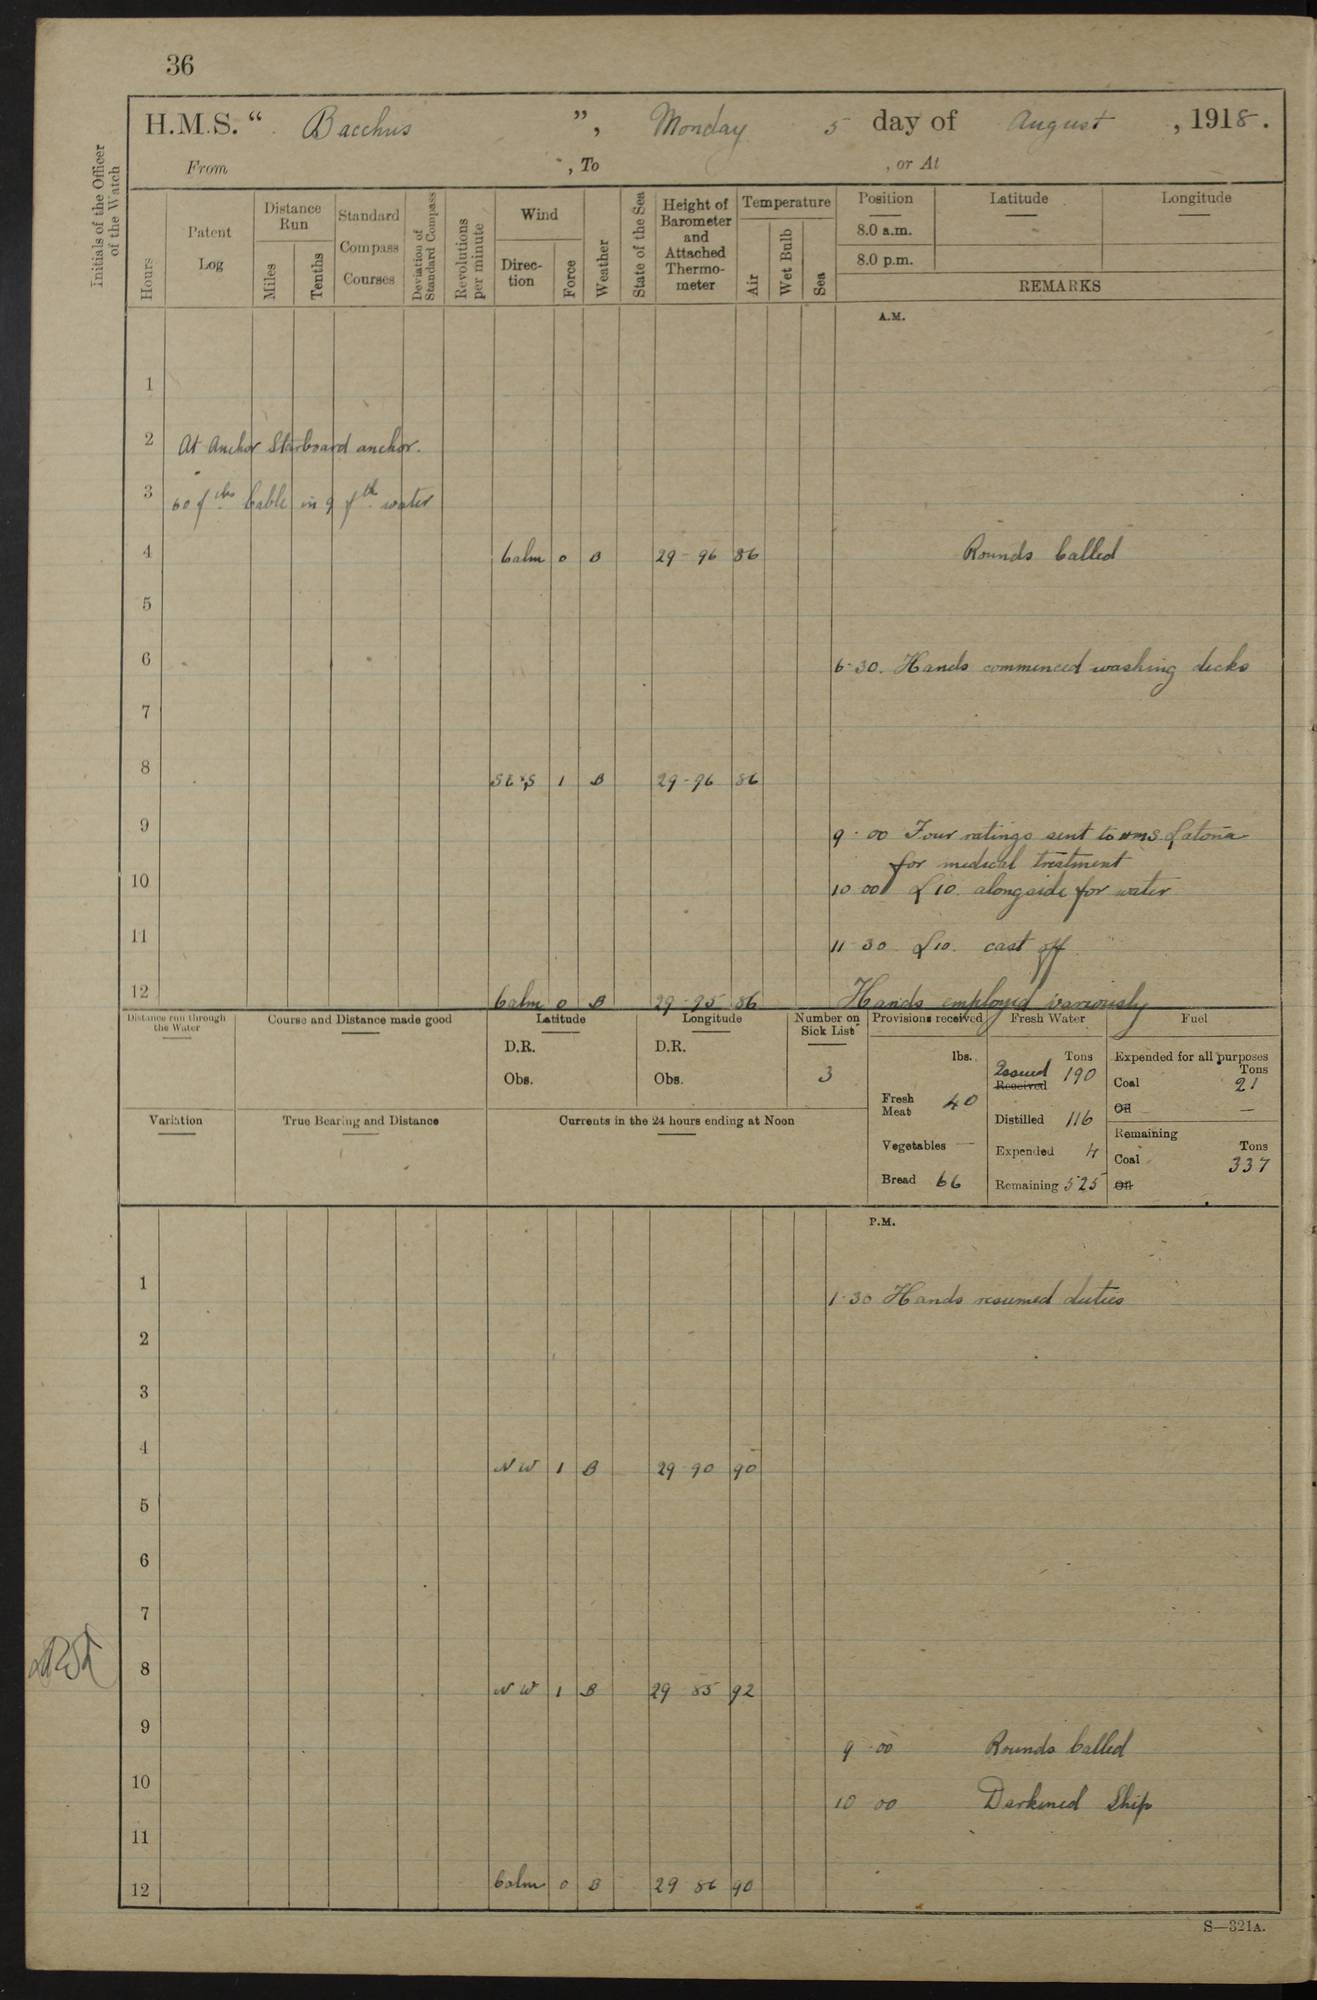 36
H.M.S. “ Bacchus ”, Monday 5 day of August , 1918.
From , To , or At
Initials of the Officer of the Watch
Hours
Patent Log
Distance Run
Miles
Tenths
Standard Compass Courses
Deviation of Standard Compass
Revolutions per minute
Wind
Direction
Force
Weather
State of the Sea
Height of Barometer and Attached Thermometer
Temperature
Air
Wet Bulb
Sea
Position Latitude Longitude
8.0 a.m.
8.0 p.m.
REMARKS
A.M.
1
2 At Anchor Starboard anchor.
3 60 fths Cable in 9 fth water
4 Calm 0 B 29-96 86 Rounds Called
5
6 6-30. Hands commenced washing decks
7
8 SExS 1 B 29-96 86
9 9-00 Four ratings sent to HMS Latona
for medical treatment
10 10 00 L10. alongside for water
11 11-30 L10. cast off
12 Calm 0 B 29-95 86 Hands employed variously
Distance run through the Water
Course and Distance made good
Latitude
D.R.
Obs.
Longitude
D.R.
Obs.
Number on Sick List
3
Variation
True Bearing and Distance
Currents in the 24 hours ending at Noon
Provisions received
lbs.
Fresh Meat 40
Vegetables —
Bread 66
Fresh Water
Tons
Issued 190
Received
Distilled 116
Expended 4
Remaining 525
Fuel
Expended for all purposes
Tons
Coal 21
Oil —
Remaining
Tons
Coal 337
Oil
P.M.
1 1-30 Hands resumed duties
2
3
4 NW 1 B 29 90 90
5
6
7
8 NW 1 B 29 85 92
9 9-00 Rounds Called
10 10 00 Darkened Ship
11
12 Calm 0 B 29 86 90
S—321A.